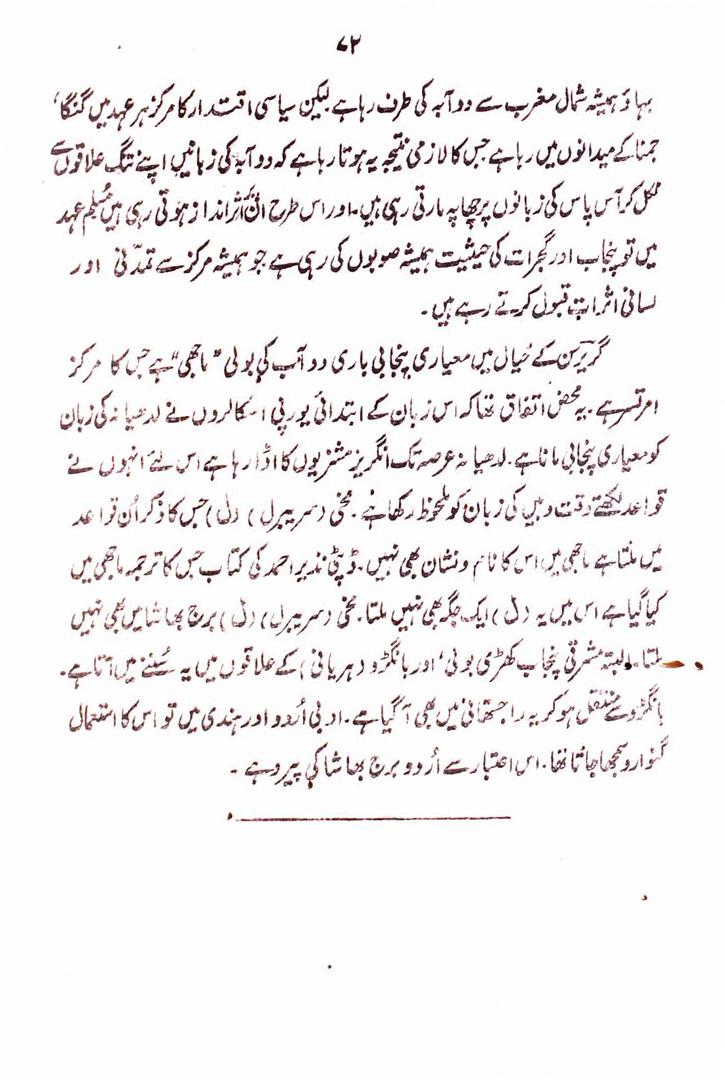 ۷۲
بہاؤ ہمیشہ شمال مغرب سے دوآبہ کی طرف رہا ہے لیکن سیاسی اقتدار کا مرکز ہر عہد میں گنگا'
جمنا کے میدانوں میں رہا ہے جس کا لازمی نتیجہ یہ ہوتا رہا ہے کہ دوآبہ کی زبانیں اپنے تنگ علاقوں سے
نکل کر آس پاس کی زبانوں پر چھاپہ مارتی رہی ہیں۔ اور اس طرح ان پر اثر انداز ہوتی رہی ہیں مُسلم عہد
میں تو پنجاب اور گجرات کی حیثیت ہمیشہ صوبوں کی رہی ہے جو ہمیشہ مرکز سے تمدّنی اور
لسانی اثرات قبول کرتے رہے ہیں۔
گریرسن کے خیال میں معیاری پنجابی باری دوآب کی بولی "ماجھی" ہے جس کا مرکز
امرتسر ہے۔ یہ محض اتفاق تھا کہ اس زبان کے ابتدائی یورپی اسکالروں نے لدھیانہ کی زبان
کو معیاری پنجابی مانا ہے۔ لدھیانہ عرصہ تک انگریز مشنریوں کا اڈا رہا ہے اس لئے انہوں نے
قواعد لکھتے وقت وہیں کی زبان کو ملحوظ رکھا ہے۔ مخی (سریبرل) (ل) جس کا ذکر اُن قواعد
میں ملتا ہے ماجھی میں اس کا نام و نشان بھی نہیں۔ ڈپٹی نذیر احمد کی کتاب جس کا ترجمہ ماجھی میں
کیا گیا ہے اس میں یہ (ل) ایک جگہ بھی نہیں ملتا۔ مخی (سریبرل) (ل) برج بھاشا میں بھی نہیں
ملتا۔ البتہ مشرقی پنجاب کھڑی بولی' اور بانگڑو (ہریانی) کے علاقوں میں یہ سُننے میں آتا ہے۔
بانگڑو سے منتقل ہو کر یہ راجستھانی میں بھی آ گیا ہے۔ ادبی اُردو اور ہندی میں تو اس کا استعمال
گنوارو سمجھا جاتا تھا۔ اس اعتبار سے اُردو برج بھاشا کی پیرو ہے۔